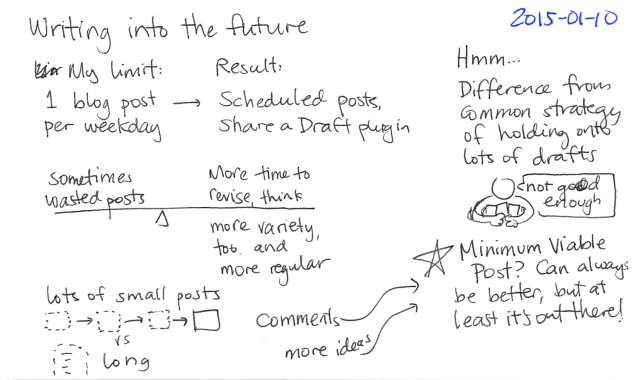 Writing into the future
2015-01-10
My limit:
1 blog post
per weekday
Result:
Scheduled posts,
Share a Draft plugin
sometimes
wasted posts
More time to
revise, think
more variety,
too. and
more regular
lots of small posts
vs
long
Hmm...
Difference from
common strategy
of holding onto
lots of drafts
not good
enough
Minimum Viable
Post? Can always
be better, but at
least it's out there!
Comments
more ideas